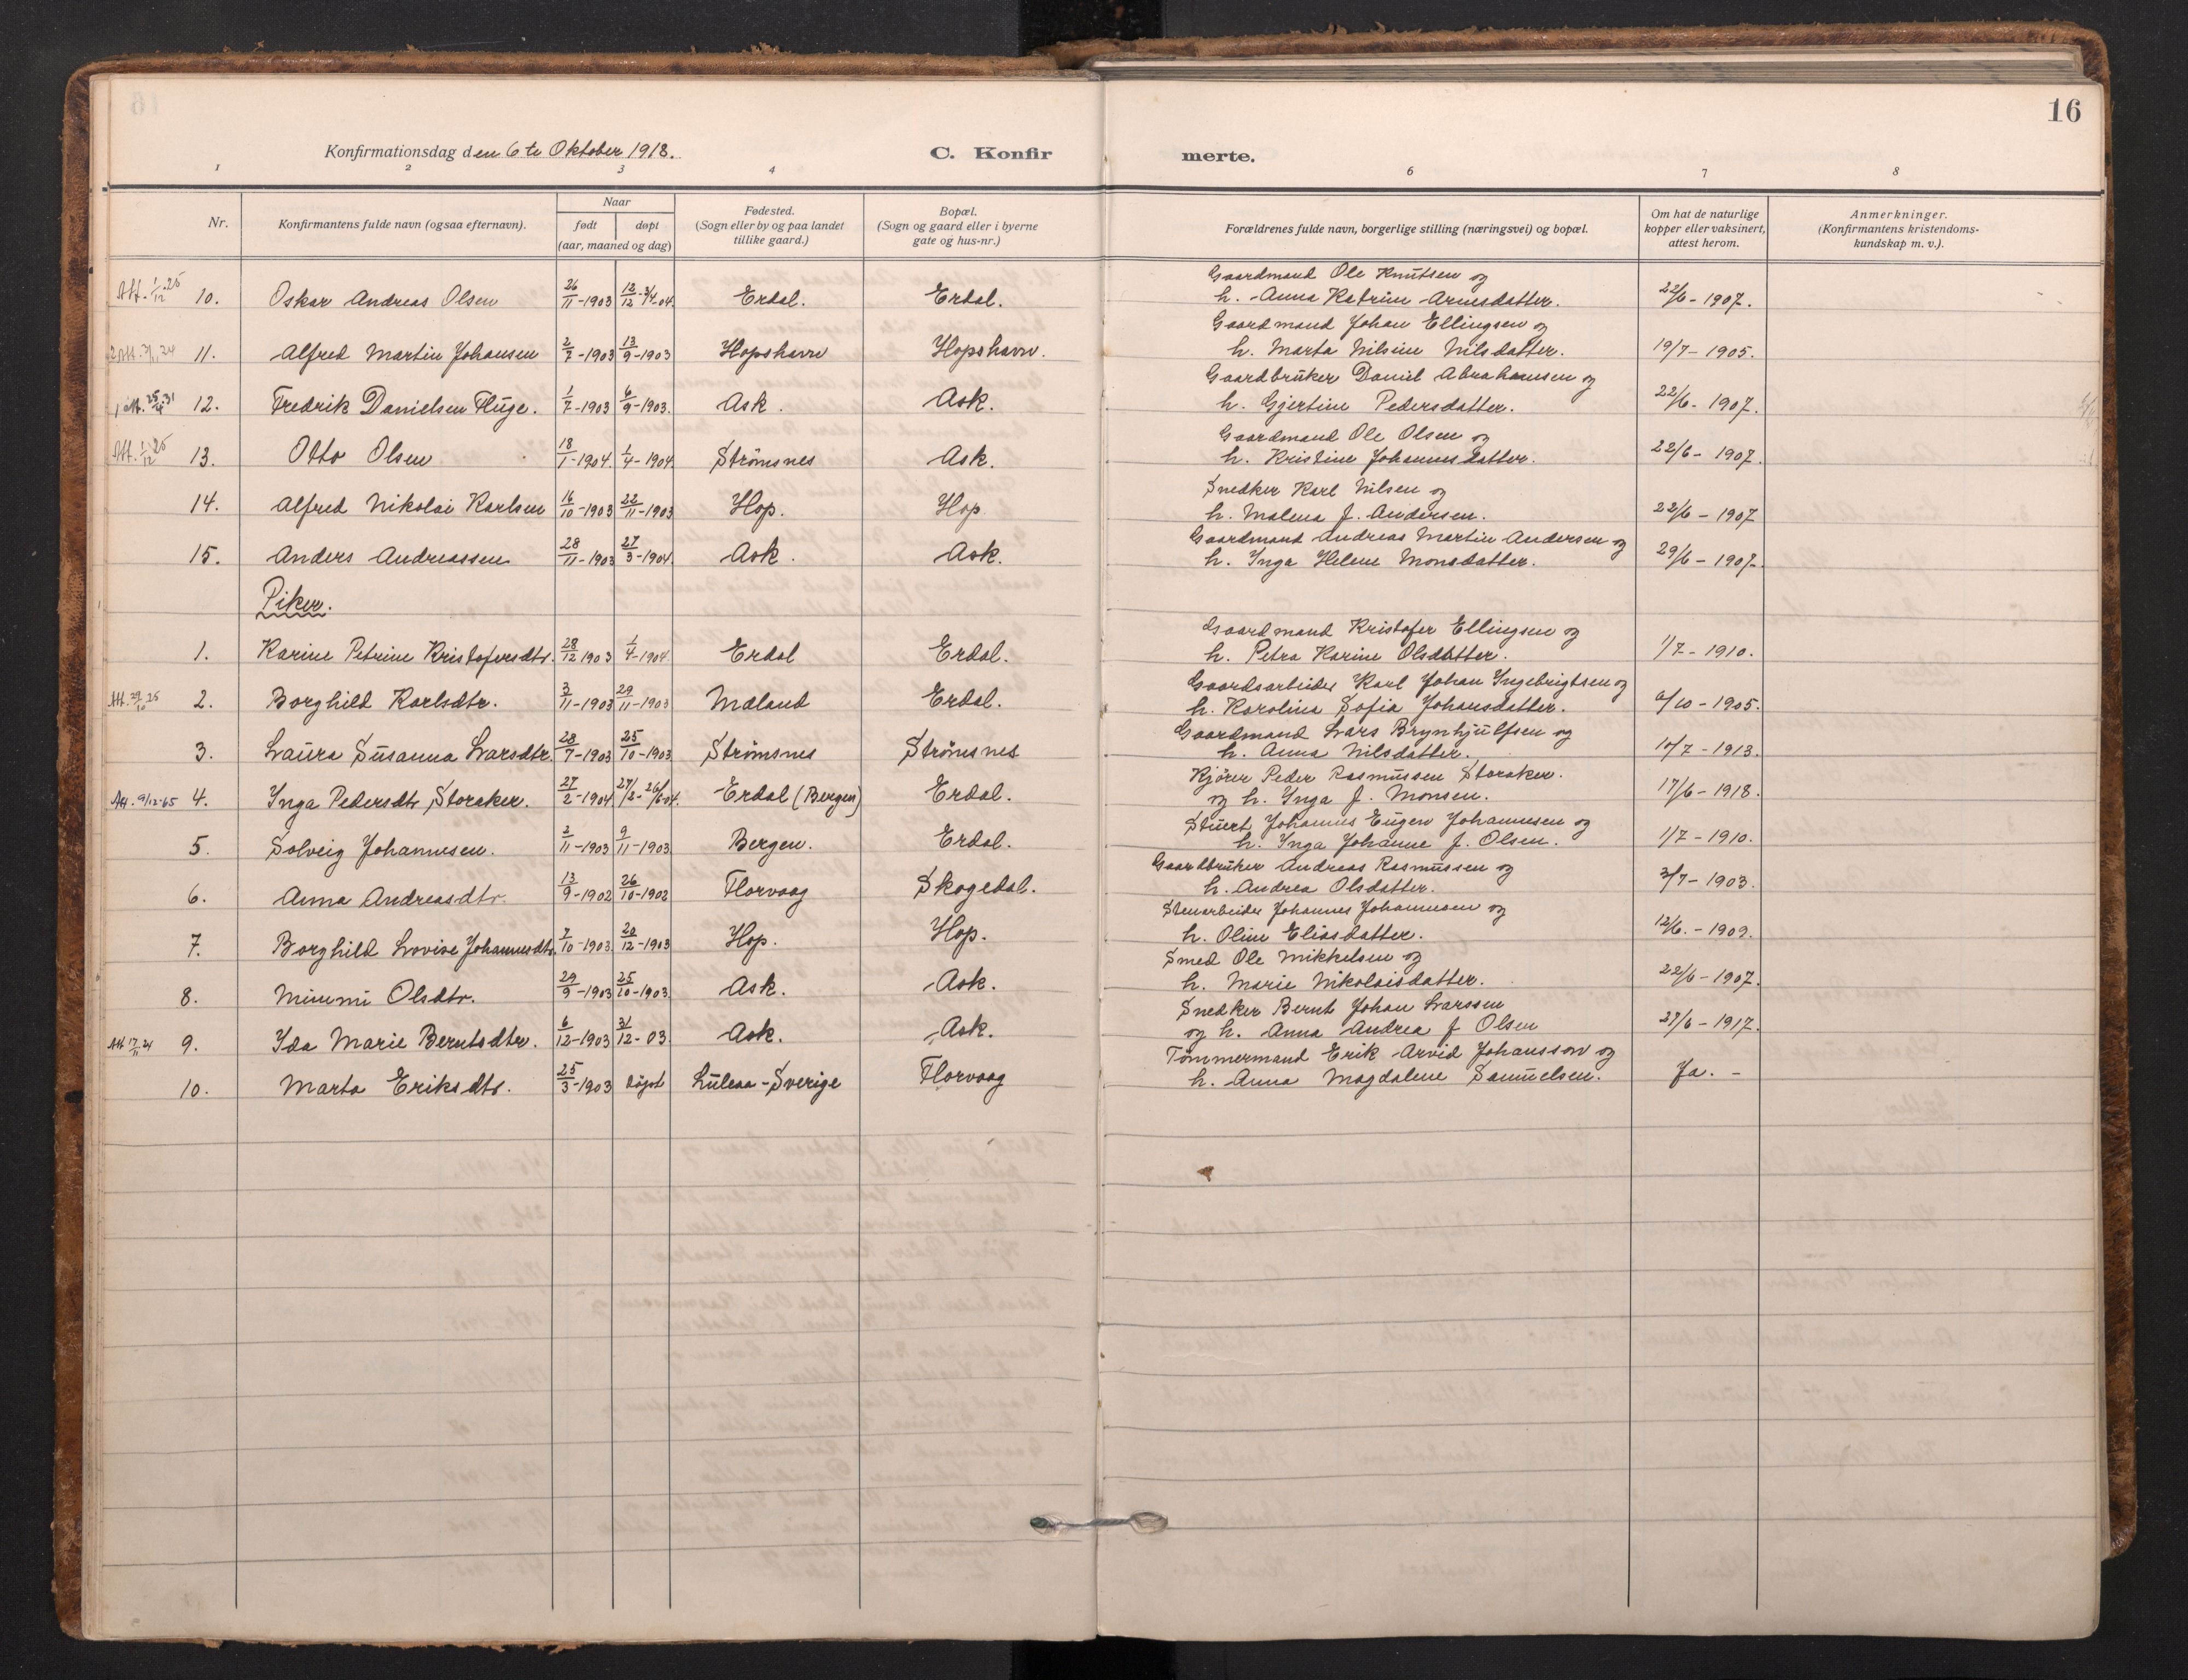 16
Konfirmationsdag den 6te Oktober 1918.
C. Konfirmerte.
1 2 3 4 6 7 8
Nr. Konfirmantens fulde navn (ogsaa efternavn). Naar født døpt (aar, maaned og dag) Fødested. (Sogn eller by og paa landet tillike gaard.) Bopæl. (Sogn og gaard eller i byerne gate og hus-nr.) Forældrenes fulde navn, borgerlige stilling (næringsvei) og bopæl. Om hat de naturlige kopper eller vaksinert, attest herom. Anmerkninger. (Konfirmantens kristendoms-kundskap m. v.).
Att. 1/12-25 10. Oskar Andreas Olsen 26/11-1903 12/12-3/4-04. Erdal. Erdal. Gaardmand Ole Knutsen og
h. Anna Katrine Arnesdatter. 22/6-1907.
11. Alfred Martin Johansen 2/7-1903 13/9-1903 Hopshavn Hopshavn. Gaardmand Johan Ellingsen og
h. Marta Nilsine Nilsdatter. 19/7-1905.
12. Fredrik Danielsen Fluge. 1/7-1903 6/9-1903. Ask. Ask. Gaardbruker Daniel Abrahamsen og
h. Gjertine Pedersdatter. 22/6-1907.
Att. 1/12-25 13. Otto Olsen 18/1-1904. 1/4-1904 Strömsnes Ask. Gaardmand Ole Olsen og
h. Kristine Johannesdatter. 22/6-1907.
14. Alfred Nikolai Karlsen 16/10-1903 22/11-1903 Hop. Hop Snedker Karl Nilsen og
h. Malena f. Andersen. 22/6-1907
15. Anders Andreassen 28/11-1903 27/3-1904. Ask. Ask. Gaardmand Andreas Martin Andersen og
h. Inga Helene Monsdatter. 29/6-1907.
Piker.
1. Karine Petrine Kristofersdtr. 28/12 1903 1/4-1904. Erdal Erdal. Gaardmand Kristofer Ellingsen og
h. Petra Karine Olsdatter. 1/7-1910.
Att. 29/10 25 2. Borghild Karlsdtr. 3/11-1903 29/11-1903 Mæland Erdal. Gaardsarbeider Karl Johan Ingebrigtsen og
h. Karolina Sofia Johansdatter. /10-1905.
3. Laura Susanna Larsdtr. 28/7-1903 25/10-1903 Strömsnes Strömsnes Gaardmand Lars Brynhjulfsen og
h. Anna Nilsdatter. 10/7-1913.
Att. 9/12-65 4. Inga Pedersdtr Storaker. 27/2-1904 27/2-26/6-04. Erdal (Bergen) Erdal. Kjörer Peder Rasmussen Storaker.
og h. Inga f. Monsen. 17/6-1918.
5. Solveig Johannesen. 2/11-1903 9/11-1903 Bergen. Erdal. Stuert Johannes Eugen Johannesen og
h. Inga Johanne f. Olsen. 1/7-1910.
6. Anna Andreasdtr. 13/9-1902 26/10-1902 Florvaag Skogedal. Gaardbruker Andreas Rasmussen og
h. Andrea Olsdatter. 3/7-1903.
7. Borghild Lovise Johannesdtr. 7/10-1903. 20/12-1903 Hop. Hop. Stenarbeider Johannes Johannesen og
h. Oline Eliasdatter. 12/6.-1909.
8. Mimmi Olsdtr. 29/9-1903 25/10-1903. Ask. Ask. Smed Ole Mikkelsen og
h. Marie Nikolaisdatter. 22/6-1907.
Att 17/11 24 9. Ida Marie Berntsdtr. 6/12-1903 31/12-03. Ask. Ask. Snedker Bernt Johan Larssen
og h. Anna Andrea f Olsen 27/6-1917.
10. Marta Eriksdtr. 25/3-1903 döpt Luleaa-Sverige Florvaag Tömmermand Erik Arvid Johansson og
h. Anna Magdalene Samuelsen. Ja. -